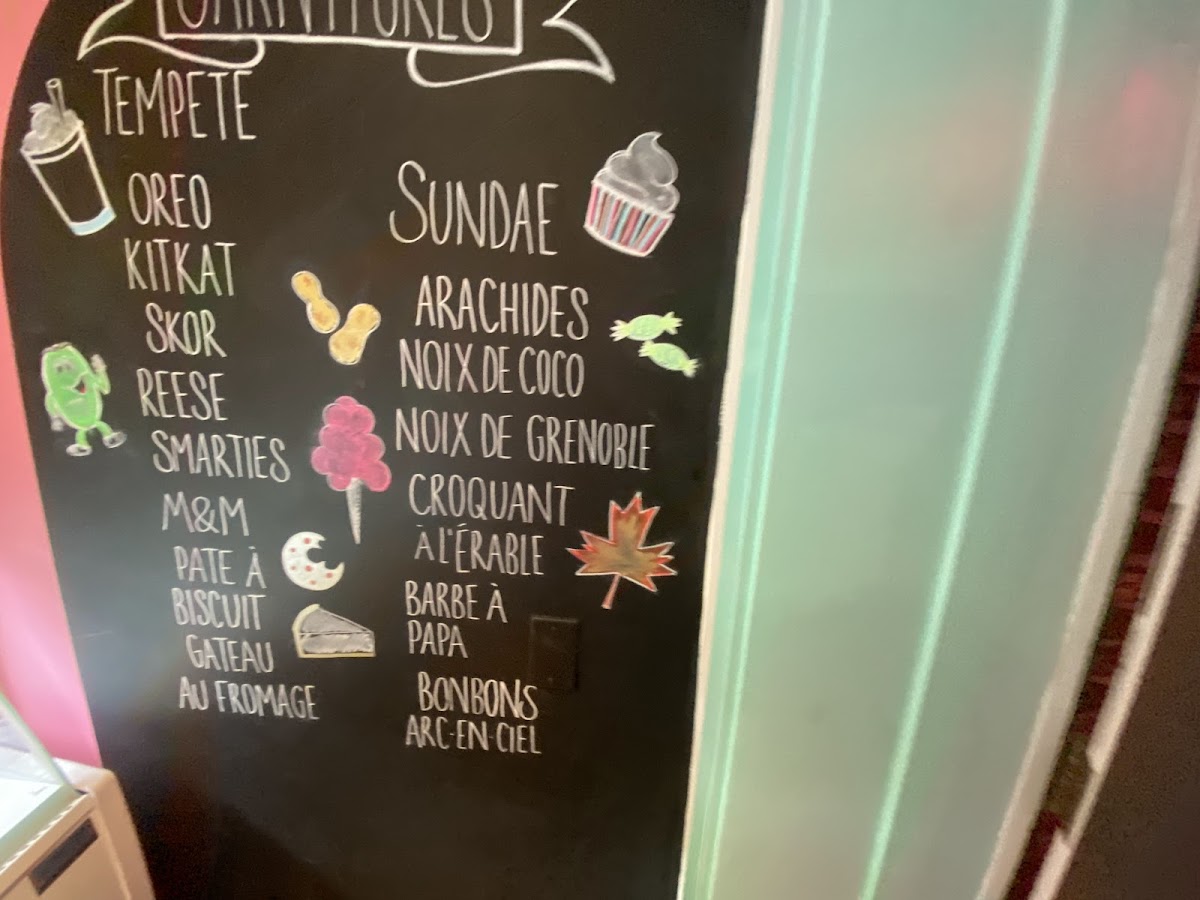 GARNITURES
TEMPETE
OREO
KITKAT
SKOR
REESE
SMARTIES
M&M
PATE À
BISCUIT
GATEAU
AU FROMAGE
SUNDAE
ARACHIDES
NOIX DE COCO
NOIX DE GRENOBLE
CROQUANT
À L'ÉRABLE
BARBE À
PAPA
BONBONS
ARC-EN-CIEL